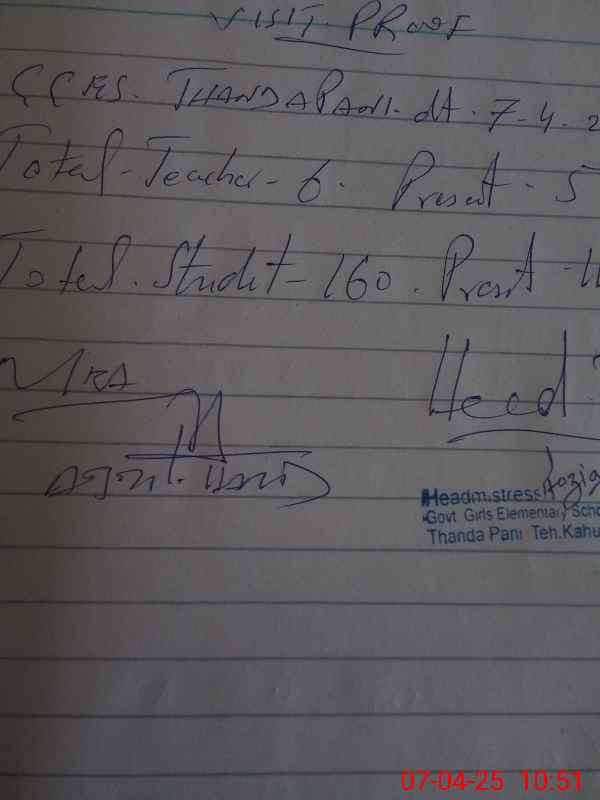 VISIT PROOF
GGES. THANDAPANI. dt. 7-4-2
Total-Teacher-6. Present-5
Total. Student-160. Present-11
MEA
Head
Headmistress
Govt Girls Elementary Scho
Thanda Pani Teh.Kahu
07-04-25 10:51